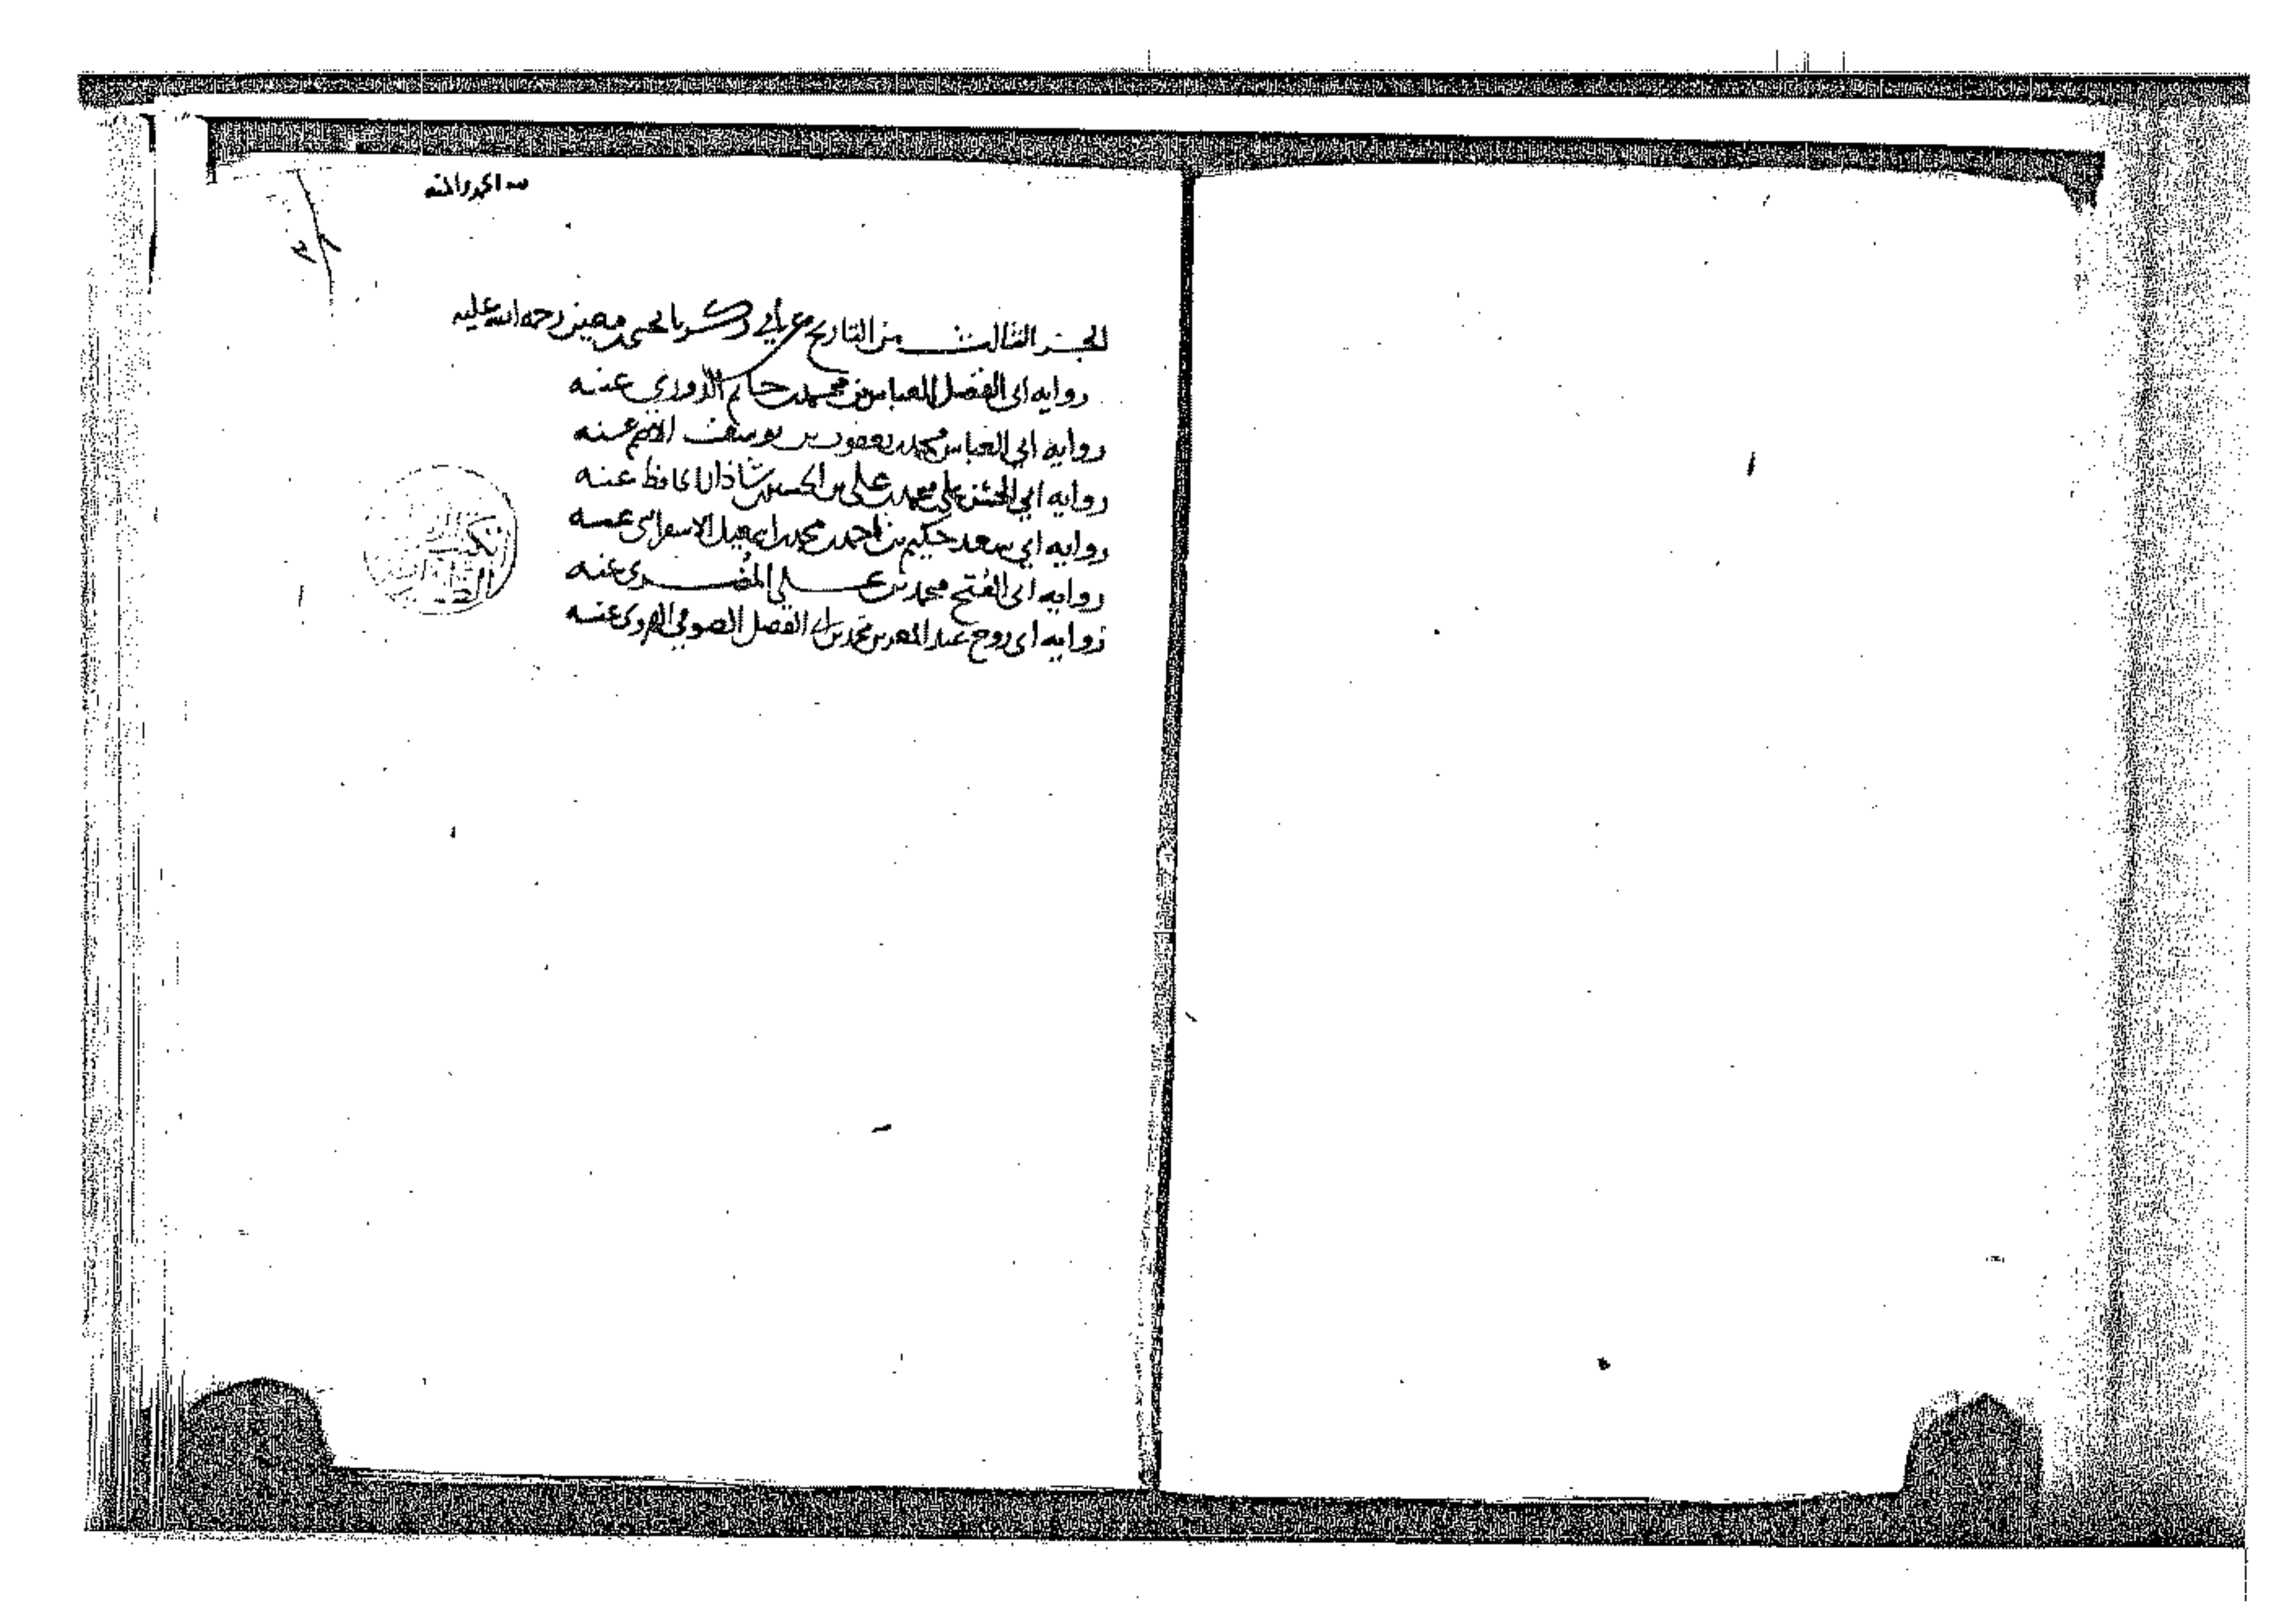 لله الحمد والمنه
الجزء الثالث من التاريخ عن ابي زكريا يحيى بن معين رحمه الله عليه
روايه ابي الفضل العباس بن محمد بن حاتم الدوري عنه
روايه ابي العباس محمد بن يعقوب بن يوسف الاصم عنه
روايه ابي الحسن علي بن محمد بن علي بن الحسين بن شاذان الحافظ عنه
روايه ابي سعد حكيم بن احمد بن محمد بن اسمعيل الاسفرايني عنه
روايه ابي الفتح محمد بن علي المضري عنه
روايه ابي روح عبد المعز بن محمد بن ابي الفضل الصوفي الهروي عنه